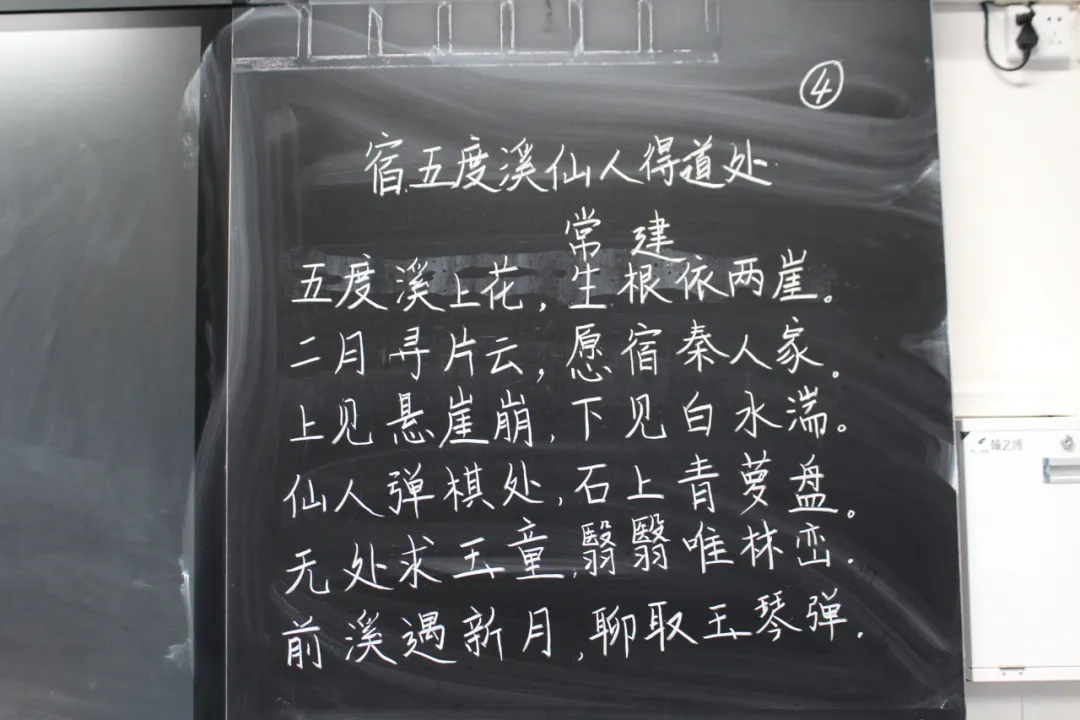 ④
宿五度溪仙人得道处
常建
五度溪上花,生根依两崖。
二月寻片云,愿宿秦人家。
上见悬崖崩,下见白水湍。
仙人弹棋处,石上青萝盘。
无处求玉童,翳翳唯林峦.
前溪遇新月,聊取玉琴弹.
翰之博